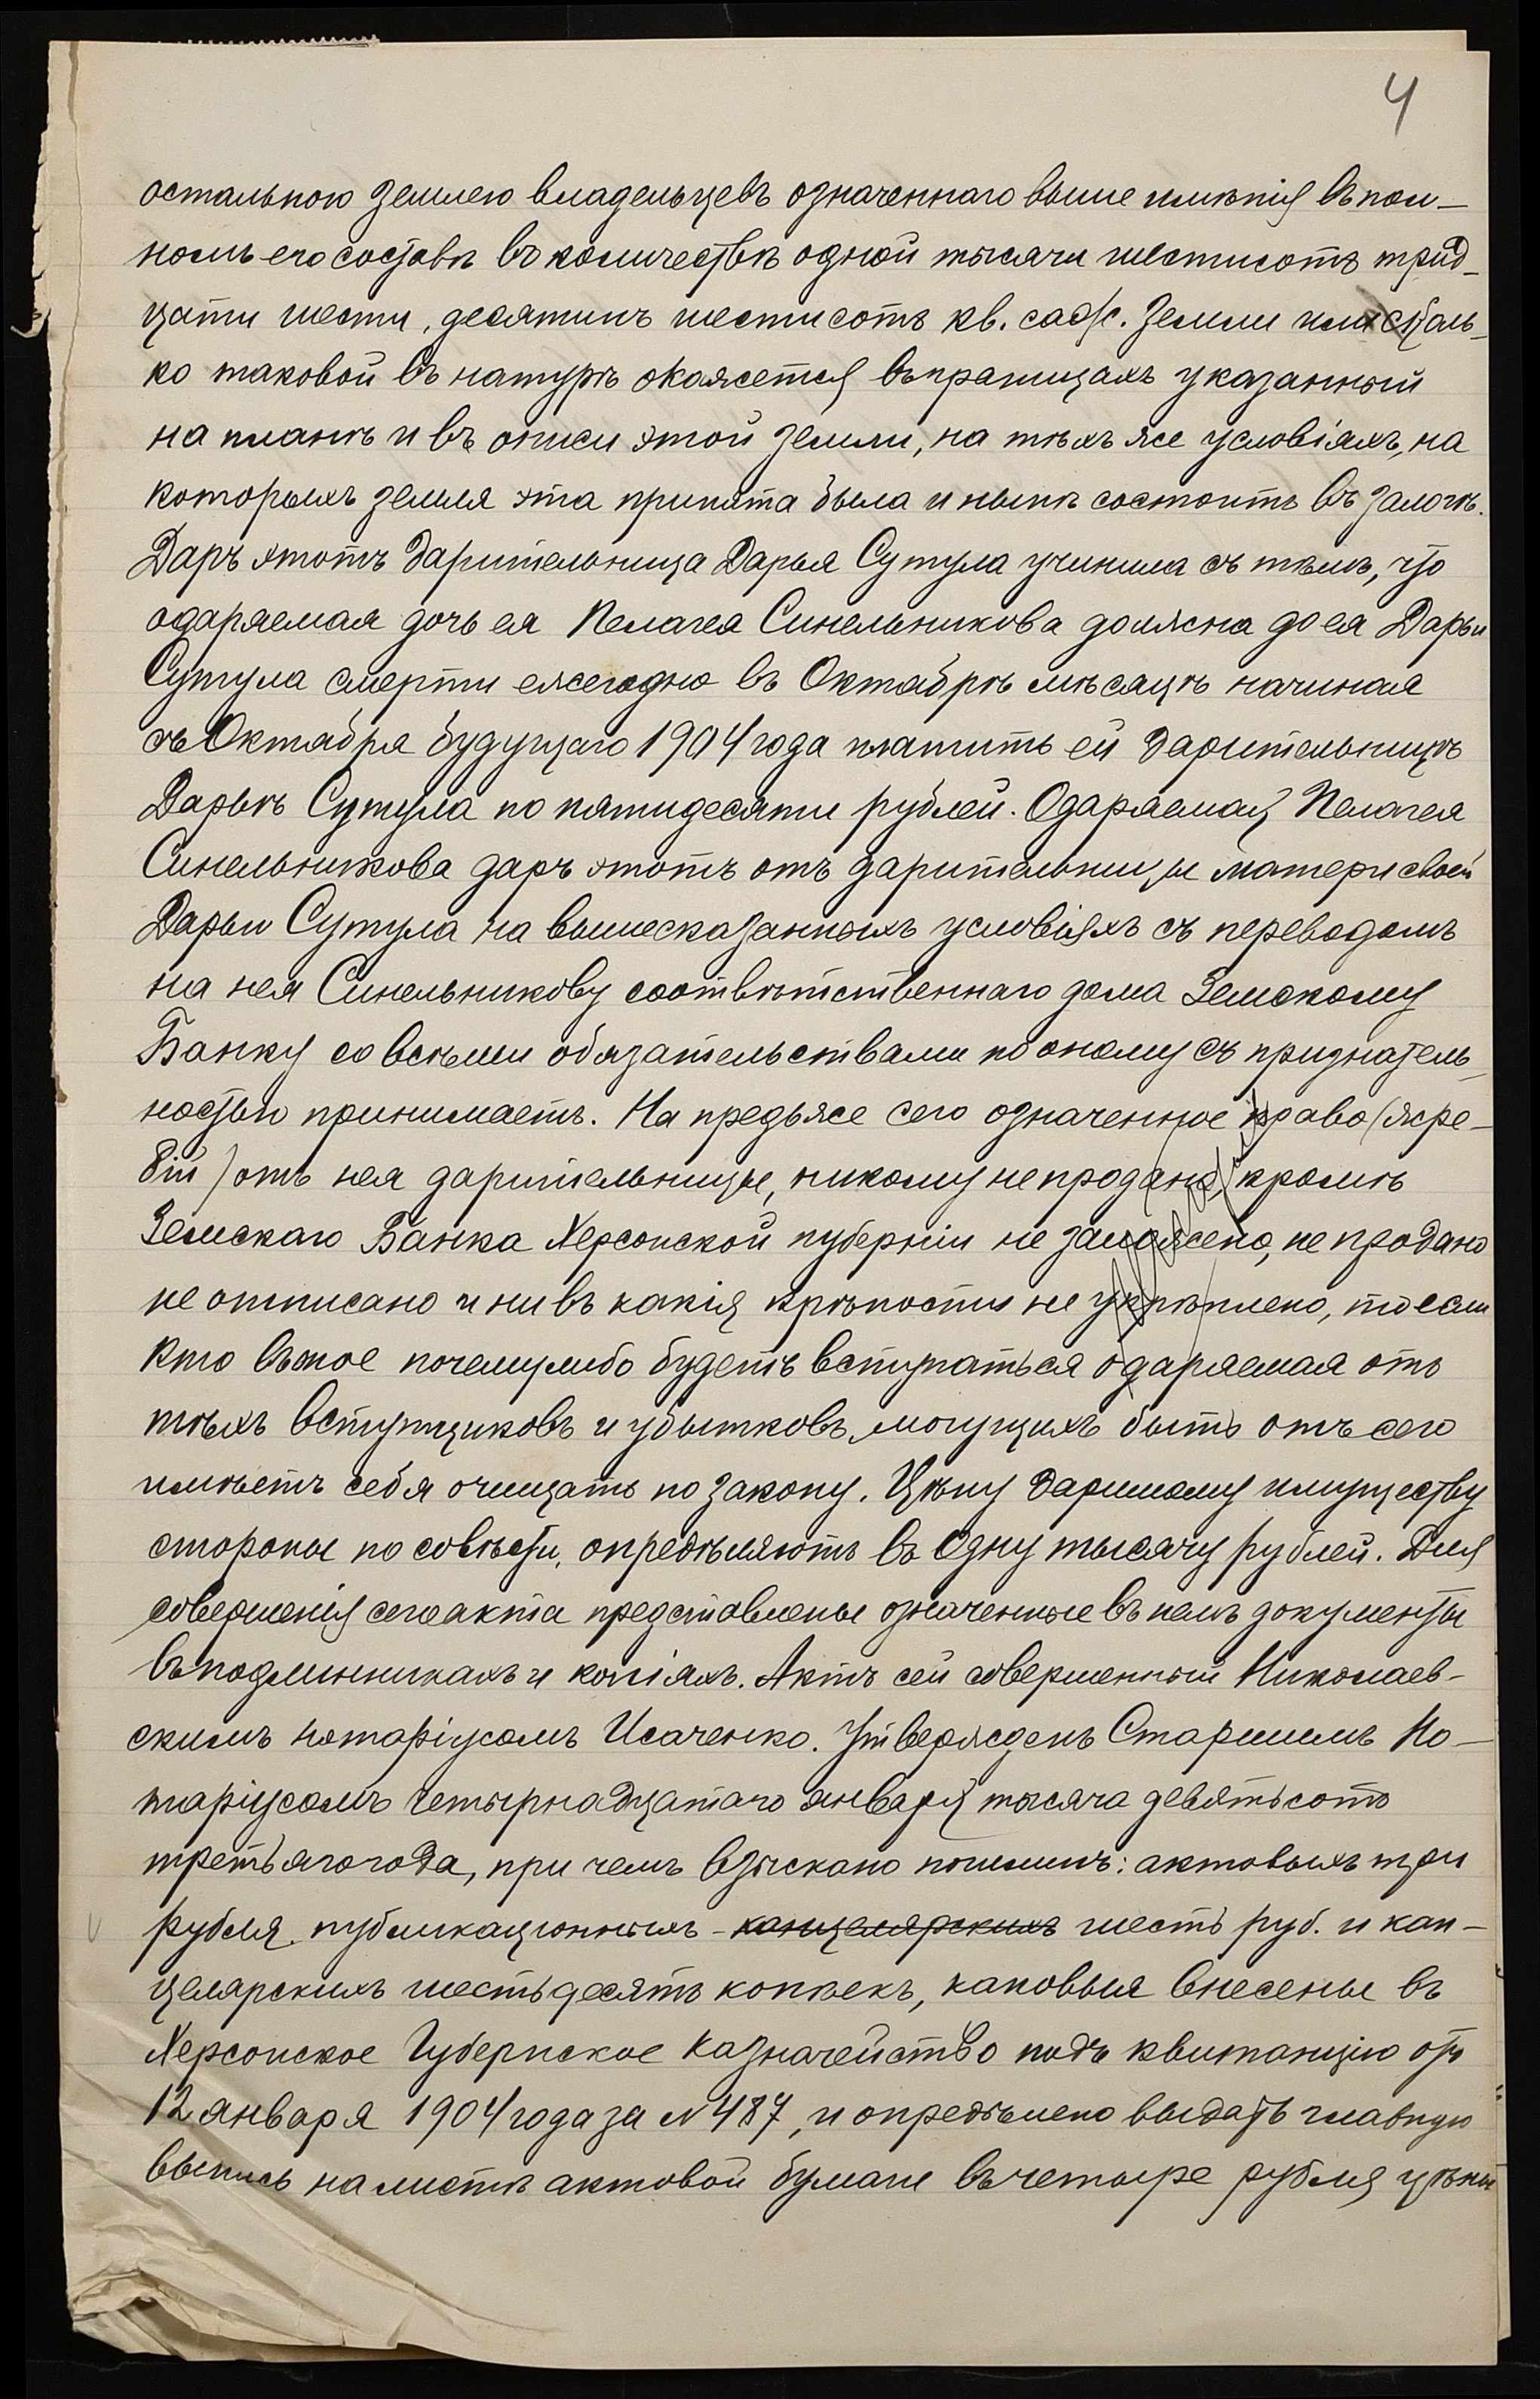 4
остальною землею владельцевъ означеннаго выше имѣнія въ пол-
номъ его составѣ въ количествѣ одной тысячи шестисотъ трид-
цати шести, десятинъ шестисотъ кв. саж. земли или сколь-
ко таковой въ натурѣ окажется въ границахъ указанный
на планѣ и въ описи этой земли, на тѣхъ же условіяхъ, на
которыхъ земля эта принята была и нынѣ состоитъ въ залогѣ.
Даръ этотъ дарительница Дарья Сутула учинила съ тѣмъ, что
одаряемая дочь ея Пелагея Синельникова должна до ея Дарьи
Сутула смерти ежегодно въ Октябрѣ мѣсяцѣ начиная
съ Октября будущаго 1904 года платить ей дарительницѣ
Дарьѣ Сутула по пятидесяти рублей. Одаряемая Пелагея
Синельникова даръ этотъ отъ дарительницы матери своей
Дарьи Сутула на вышесказанныхъ условіяхъ съ переводомъ
на нея Синельникову соотвѣтственнаго долга Земскому
Банку со всѣми обязательствами по оному съ признатель-
ностью принимаетъ. На предь же сего означенное право (жре-
бій) отъ нея дарительницы, никому не продано, кромѣ
Земскаго Банка Херсонской губерніи не заложено, не продано
не отписано и ни въ какія крѣпости не укрѣплено, то если
кто въ тое почему либо будетъ вступаться одаряемая отъ
тѣхъ вступщиковъ и убытковъ, могущихъ быть отъ сего
имѣетъ себя очищать по закону. Цѣну даримому имуществу
стороны по совѣсти, опредѣляютъ въ одну тысячу рублей. Для
совершенія сего акта представлены означенные въ немъ документы
въ подлинникахъ и копіяхъ. Актъ сей совершенный Николаев-
скимъ нотаріусомъ Исаченко. Утвержденъ Старшимъ Но-
таріусомъ четырнадцатаго января тысяча девятьсотъ
третьяго года, при чемъ взыскано пошлинъ: актовыхъ три
рубля, публикаціонныхъ - канцелярскихъ шесть руб. и кан-
целярскихъ шестьдесятъ копѣекъ, каковыя внесены въ
Херсонское Губернское Казначейство подъ квитанцію отъ
12 января 1904 года за № 487, и опредѣлено выдать главную
выпись на листѣ актовой бумаги въ четыре рубля цѣны